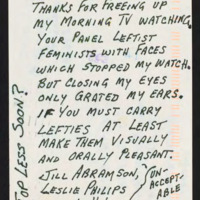 THANKS FOR FREEING UP
MY MORNING TV WATCHING.
YOUR PANEL LEFTIST
FEMINISTS WITH FACES
WHICH STOPPED MY WATCH.
BUT CLOSING MY EYES
ONLY GRATED MY EARS.
IF YOU MUST CARRY
LEFTIES AT LEAST
MAKE THEM VISUALLY
AND ORALLY PLEASANT.
JILL ABRAMSON,
LESLIE PHILIPS
UN-
ACCEPT-
ABLE
TOP LESS SOON?